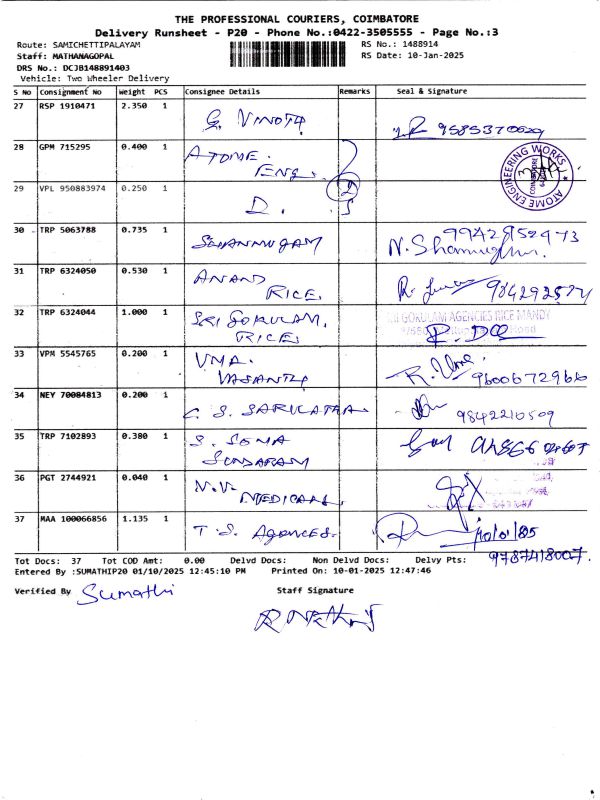 THE PROFESSIONAL COURIERS, COIMBATORE
Delivery Runsheet - P20 - Phone No.:0422-3505555 - Page No.:3
Route: SAMICHETTIPALAYAM
RS No.: 1488914
Staff: MATHANAGOPAL
RS Date: 10-Jan-2025
DRS No.: DCJB148891403
Vehicle: Two Wheeler Delivery
S No Consignment No Weight PCS Consignee Details Remarks Seal & Signature
27 RSP 1910471 2.350 1
G. VINOTH
28 GPM 715295 0.400 1 ATOME.
ENG.
2
ATOME ENGINEERING WORKS
29 VPL 950883974 0.250 1
D.
30 TRP 5063788 0.735 1 SHANMUGAM
31 TRP 6324050 0.530 1 ANAND
RICE.
32 TRP 6324044 1.000 1 SRI GOKULAM.
RICE.
GOKULAM AGENCIES RICE MANDY
33 VPM 5545765 0.200 1 UMA.
VASANTH
R. Uma.
9600672966
34 NEY 70084813 0.200 1 C. S. SARULATHA
9842210509
35 TRP 7102893 0.380 1 S. SOMA
SUNDARAM
36 PGT 2744921 0.040 1 N.V.
MEDICALS
37 MAA 100066856 1.135 1 T. S. Agences.
9787418007.
Tot Docs: 37 Tot COD Amt: 0.00 Delvd Docs: Non Delvd Docs: Delvy Pts:
Entered By :SUMATHIP20 01/10/2025 12:45:10 PM Printed On: 10-01-2025 12:47:46
Verified By Sumathi Staff Signature